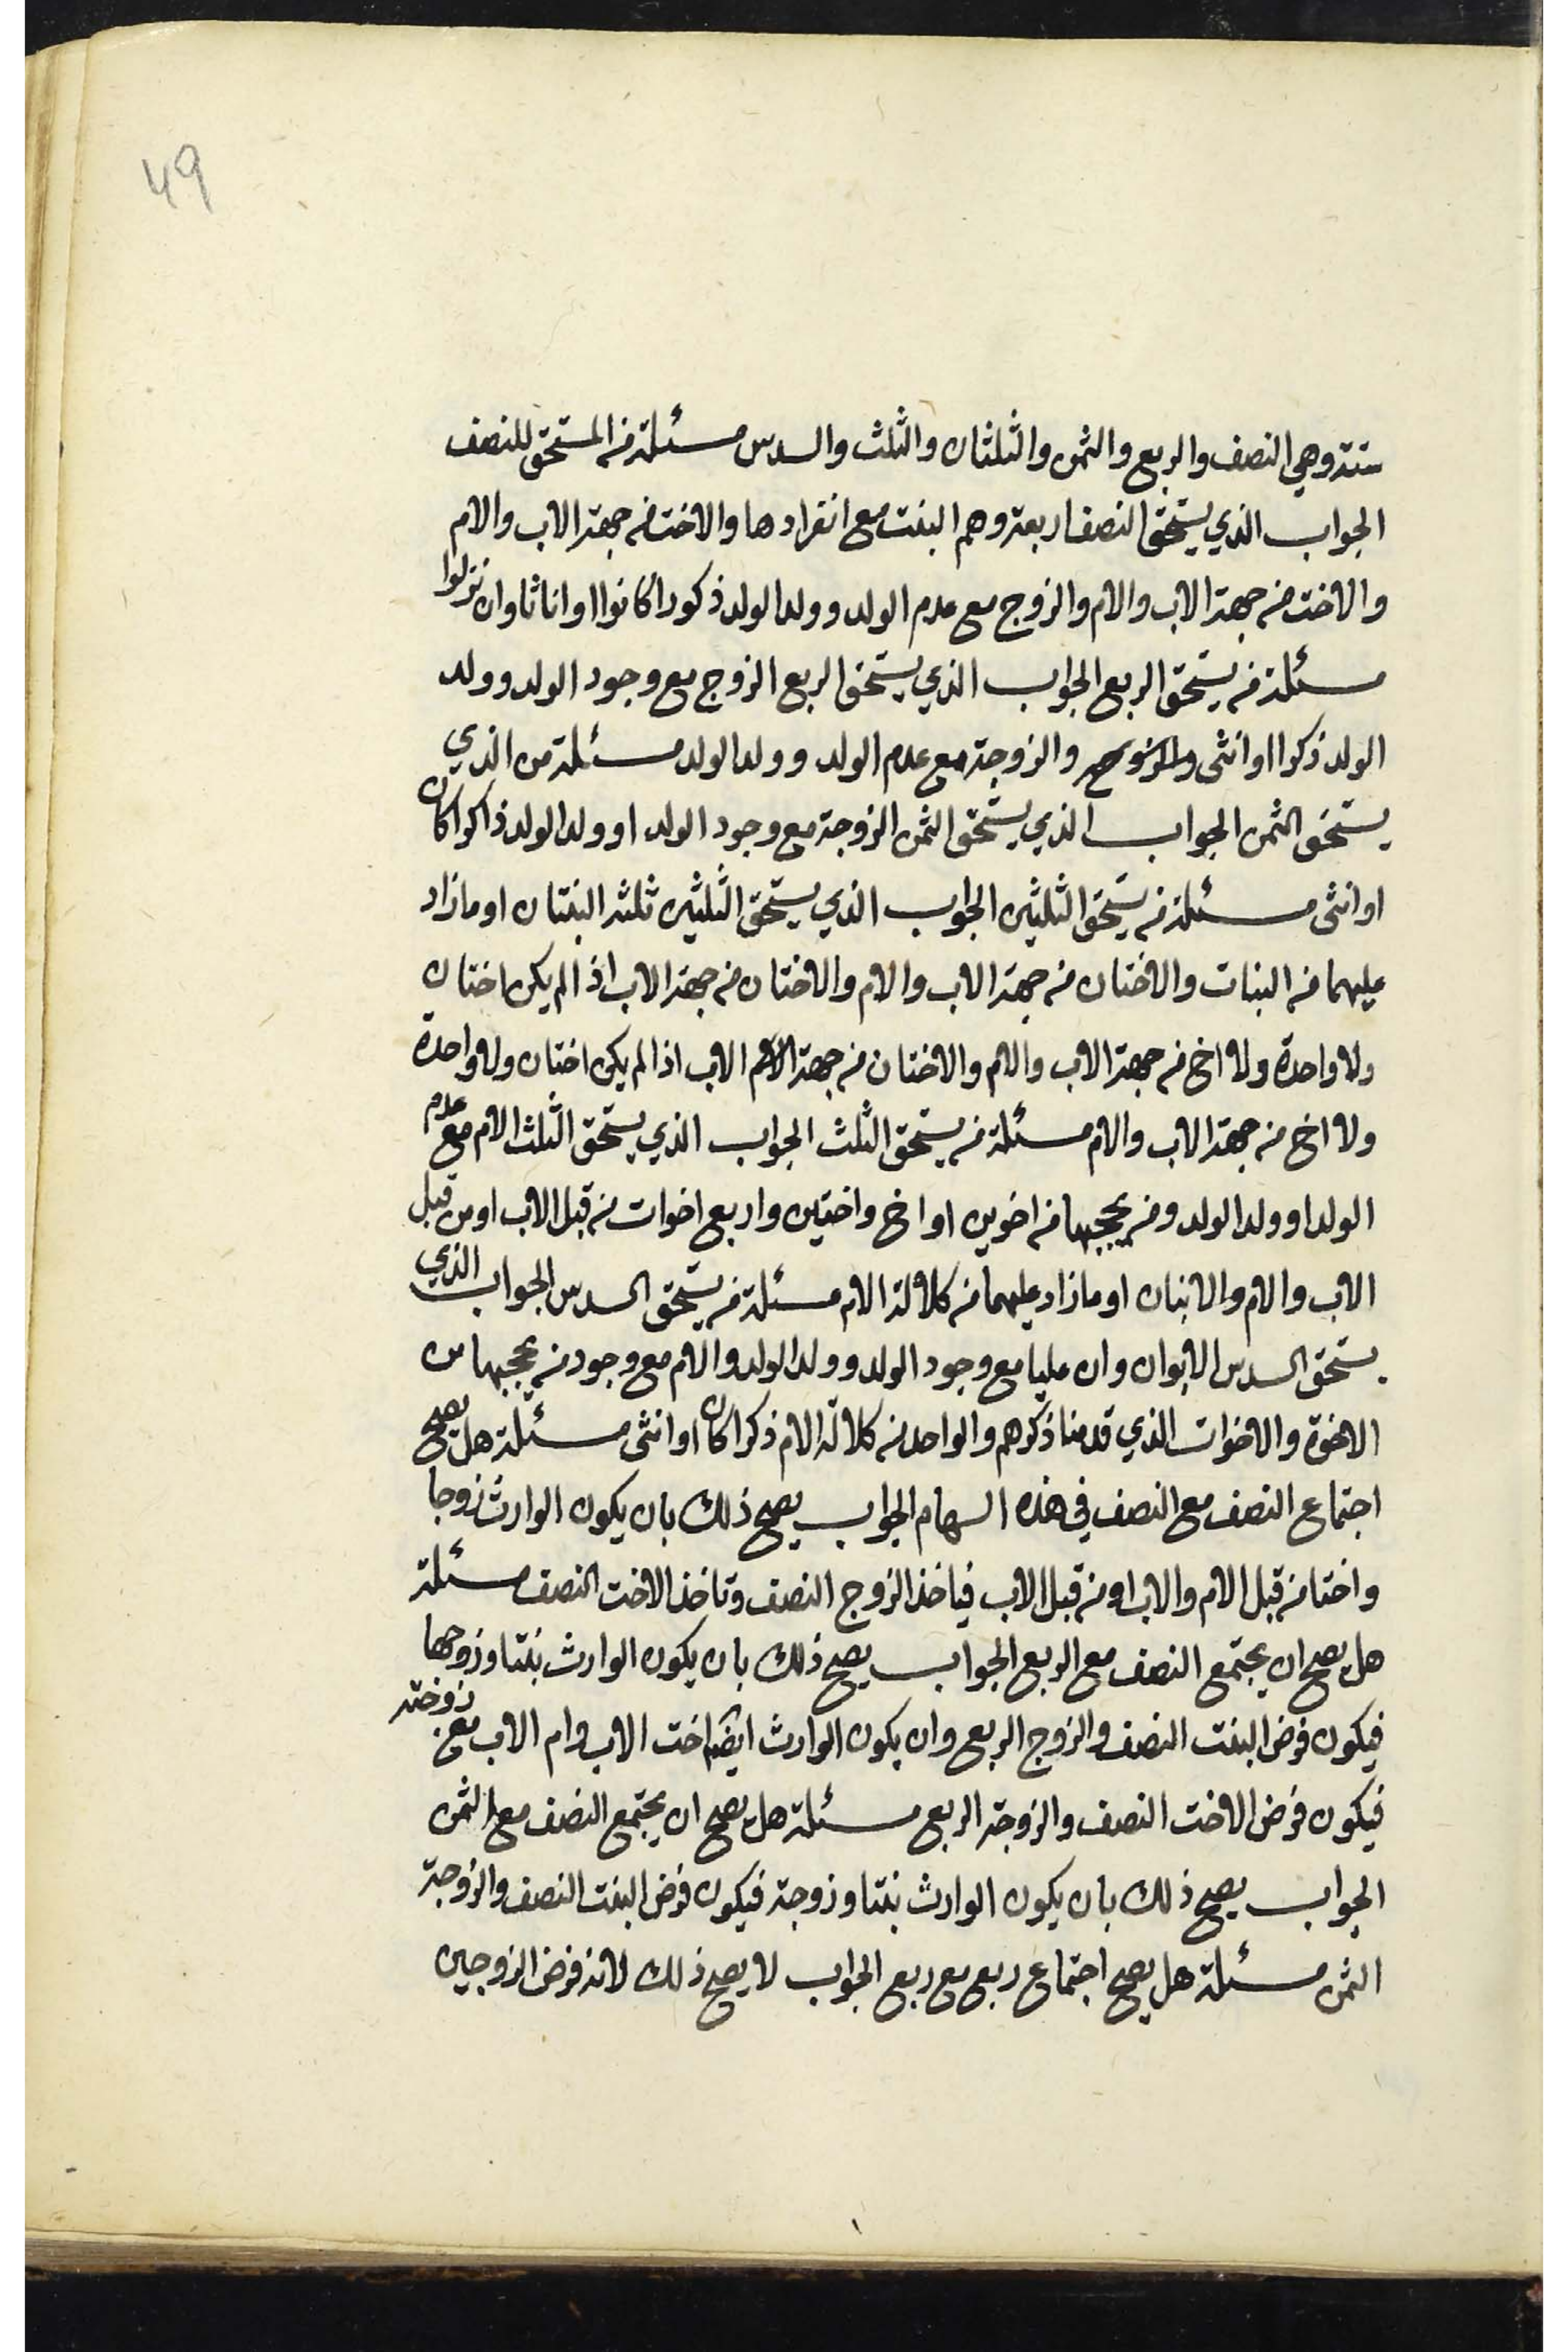 49
ستة وهي النصف والربع والثمن والثلثان والثلث والسدس مسئلة من المستحق للنصف
الجواب الذي يستحق النصف اربعة وهم البنت مع انفرادها والاخت من جهة الاب والام
والاخت من جهة الاب والام والزوج مع عدم الولد وولد الولد ذكورا كانوا او اناثا وان نزلوا
مسئلة من يستحق الربع الجواب الذي يستحق الربع الزوج مع وجود الولد وولد
الولد ذكرا او انثى والزوجة مع عدم الولد وولد الولد مسئلة من الذي
يستحق الثمن الجواب الذي يستحق الثمن الزوجة مع وجود الولد او ولد الولد ذاكرا كان
او انثى مسئلة من يستحق الثلثين الجواب الذي يستحق الثلثين ثلثه البنتان او ما زاد
عليهما من البنات والاختان من جهة الاب والام والاختان من جهة الاب اذا لم يكن اختان
ولا واحدة ولا اخ من جهة الاب والام والاختان من جهة الام الاب اذا لم يكن اختان ولا واحدة
ولا اخ من جهة الاب والام مسئلة من يستحق الثلث الجواب الذي يستحق الثلث الام مع عدم
الولد او ولد الولد ومن يحجبها من اخوين او اخ واختين واربع اخوات من قبل الاب او من قبل
الاب والام والاثنان او ما زاد عليهما من كلالة الام مسئلة من يستحق السدس الجواب الذي
يستحق السدس الابوان وان عليا مع وجود الولد وولد الولد والام مع وجود من يحجبها من
الاخوة والاخوات الذي قدمنا ذكرهم والواحد من كلالة الام ذكرا كان او انثى مسئلة هل يصح
اجتماع النصف مع النصف في هذه السهام الجواب يصح ذلك بان يكون الوارث زوجا
واختا من قبل الام والاب او من قبل الاب فياخذ الزوج النصف وتاخذ الاخت النصف مسئلة
هل يصح ان يجتمع النصف مع الربع الجواب يصح ذلك بان يكون الوارث بنتا وزوجها
فيكون فرض البنت النصف والزوج الربع وان يكون الوارث ايضا اخت الاب وام الاب مع زوجته
فيكون فرض الاخت النصف والزوجة الربع مسئلة هل يصح ان يجتمع النصف مع الثمن
الجواب يصح ذلك بان يكون الوارث بنتا وزوجة فيكون فرض البنت النصف والزوجة
الثمن مسئلة هل يصح اجتماع ربع مع ربع الجواب لا يصح ذلك لانه فرض الزوجين